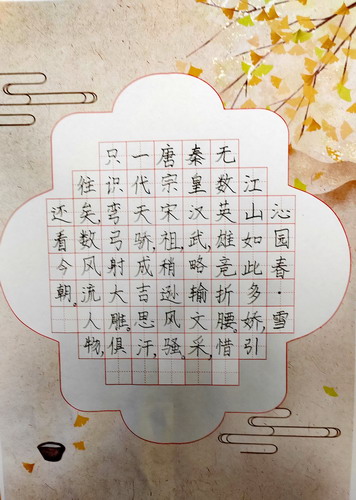 沁园春·雪
江山如此多娇,引
无数英雄竞折腰。惜
秦皇汉武,略输文采,
唐宗宋祖,稍逊风骚。
一代天骄,成吉思汗,
只识弯弓射大雕。俱
往矣,数风流人物,
还看今朝。